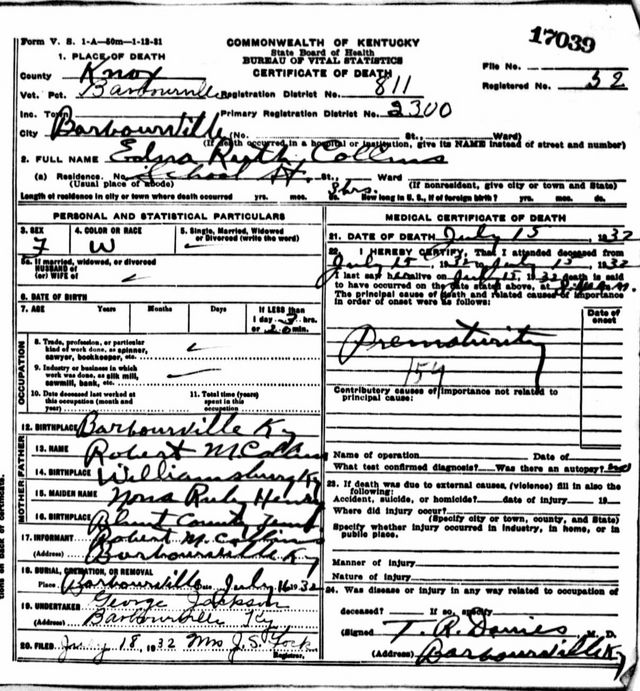 17039
Form V. S. 1-A—50m—1-13-31
COMMONWEALTH OF KENTUCKY
State Board of Health
BUREAU OF VITAL STATISTICS
CERTIFICATE OF DEATH
File No.
Registered No. 52
1. PLACE OF DEATH
County Knox
Vot. Pct. Barbourville Registration District No. 811
Inc. Town Primary Registration District No. 2300
City Barbourville (No. St., Ward)
(If death occurred in a hospital or institution, give its NAME instead of street and number)
2. FULL NAME Edna Ruth Collins
(a) Residence. No. School St. St., Ward
(Usual place of abode) (If nonresident, give city or town and State)
Length of residence in city or town where death occurred yrs. mos. 3 hrs. How long in U. S., if of foreign birth? yrs. mos. ds.
PERSONAL AND STATISTICAL PARTICULARS
3. SEX 4. COLOR OR RACE 5. Single, Married, Widowed or Divorced (write the word)
F W
5a. If married, widowed, or divorced
HUSBAND of
(or) WIFE of
6. DATE OF BIRTH
7. AGE Years Months Days If LESS than
1 day 3 hrs.
or 20 min.
OCCUPATION
8. Trade, profession, or particular
kind of work done, as spinner,
sawyer, bookkeeper, etc.
9. Industry or business in which
work was done, as silk mill,
sawmill, bank, etc.
10. Date deceased last worked at
this occupation (month and
year)
11. Total time (years)
spent in this
occupation
12. BIRTHPLACE Barbourville Ky
FATHER
13. NAME Robert M Collins
14. BIRTHPLACE Williamsburg Ky
MOTHER
15. MAIDEN NAME Nora Ruby Henry
16. BIRTHPLACE Blount County Tenn
17. INFORMANT Robert M. Collins
(Address) Barbourville Ky
18. BURIAL, CREMATION, OR REMOVAL
Place Barbourville Date July 16 1932
19. UNDERTAKER George Jackson
Barbourville Ky
20. FILED 18, 1932 Mrs J. S. York
Registrar.
MEDICAL CERTIFICATE OF DEATH
21. DATE OF DEATH July 15 1932
22. I HEREBY CERTIFY, That I attended deceased from
July 15, 1932 to July 15, 1932
I last saw h alive on July 15, 1932 death is said
to have occurred on the date stated above, at m.
The principal cause of death and related causes of importance
in order of onset were as follows:
Date of
onset
Prematurity
159
Contributory causes of importance not related to
principal cause:
Name of operation Date of
What test confirmed diagnosis? Was there an autopsy?
23. If death was due to external causes, (violence) fill in also the
following:
Accident, suicide, or homicide? date of injury 19
Where did injury occur?
(Specify city or town, county, and State)
Specify whether injury occurred in industry, in home, or in
public place.
Manner of injury
Nature of injury
24. Was disease or injury in any way related to occupation of
deceased? If so, specify
(Signed T. R. Davies M. D.
(Address) Barbourville Ky
tions on back of certificate.